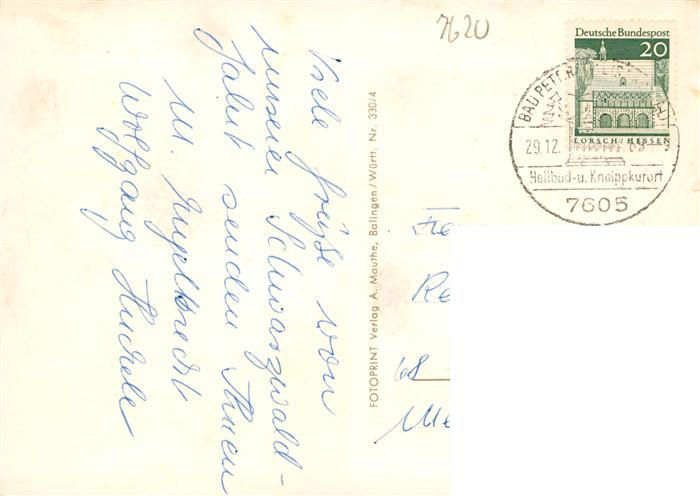 7620
Deutsche Bundespost
20
LORSCH/HESSEN
BAD PETER
29.12.
Heilbad-u. Kneippkurort
7605
Viele Grüße von
unserer Schwarzwald-
fahrt senden Ihnen
M. Engelbrecht
Wolfgang Huckele
FOTOPRINT Verlag A. Mauthe, Balingen/Württ. Nr. 330/4
68